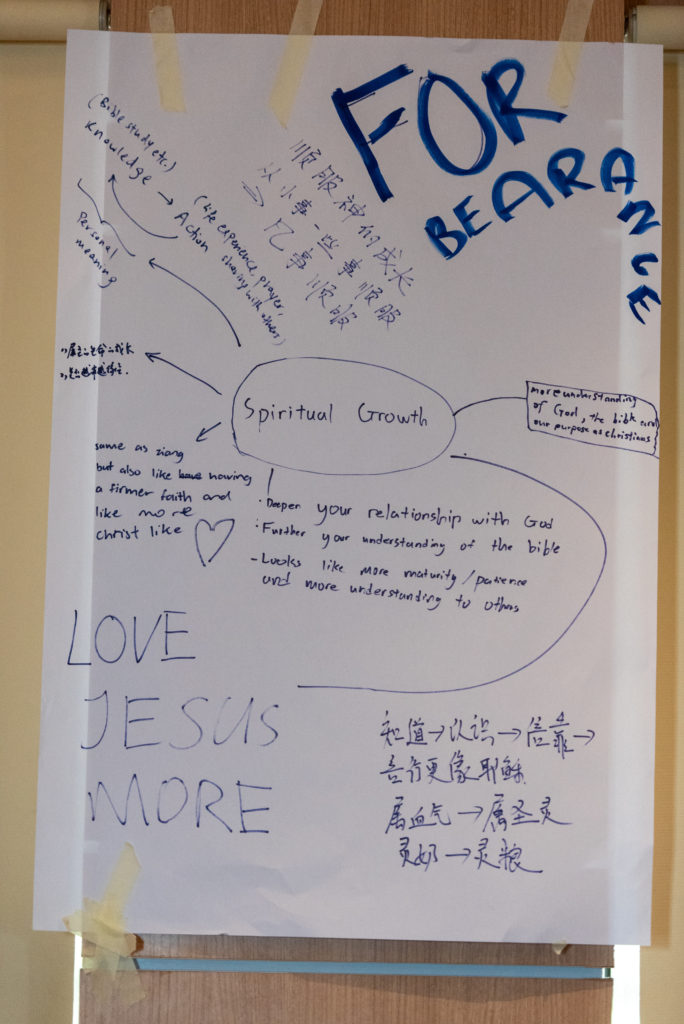 FOR
BEARANCE
(Bible study etc.)
Knowledge → Action
(life experience, prayer,
sharing with others)
Personal
meaning
顺服神的成长
从小事一些事顺服
凡事顺服
Spiritual Growth
more understanding
of God, the bible and
our purpose as christians
same as
but also like having
a firmer faith and
like more
christ like
· Deepen your relationship with God
· Further your understanding of the bible
- Looks like more maturity/patience
and more understanding to others
LOVE
JESUS
MORE
知道→认识→信靠→
言行更像耶稣
属血气→属圣灵
灵奶→灵粮